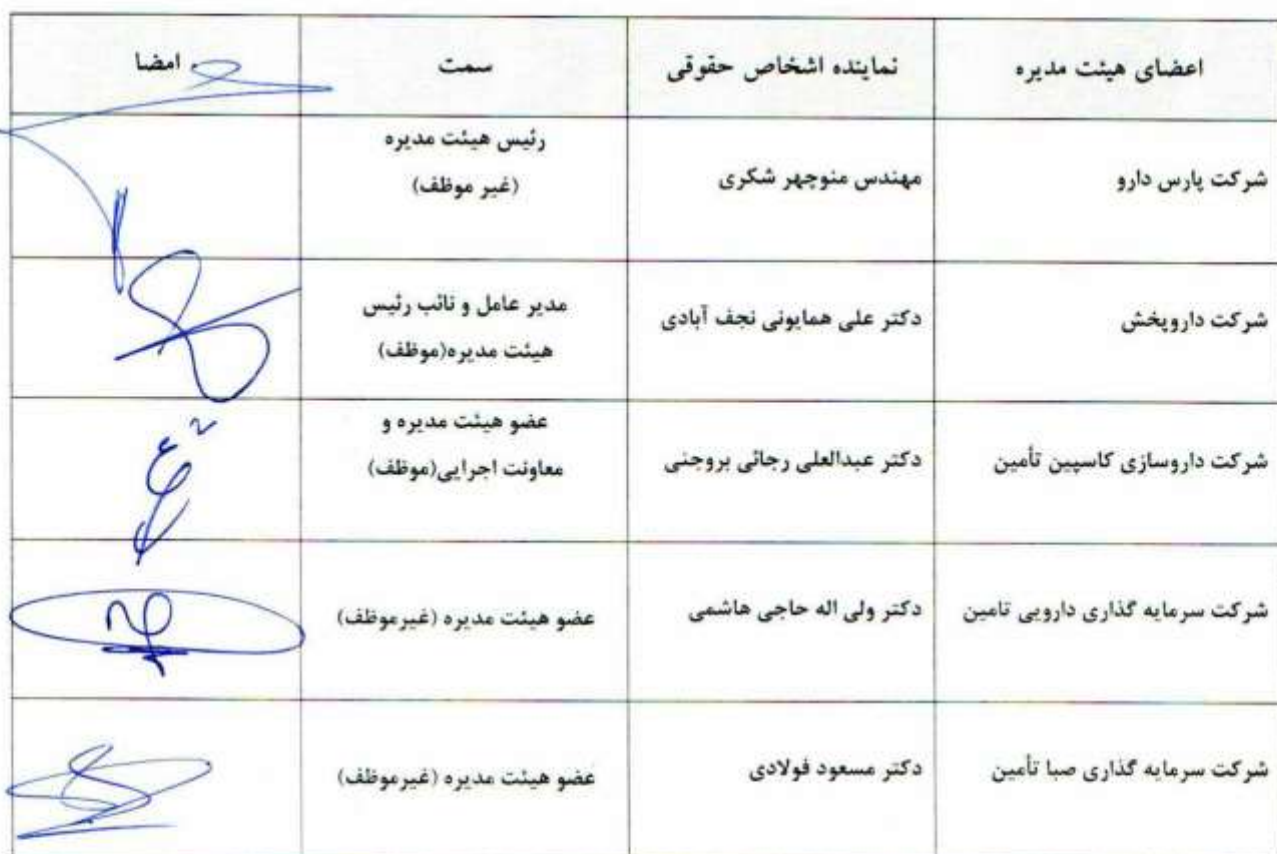 اعضای هیئت مدیره	نماینده اشخاص حقوقی	سمت	امضا
شرکت پارس دارو	مهندس منوچهر شکری	رئیس هیئت مدیره
(غیر موظف)
شرکت داروپخش	دکتر علی همایونی نجف آبادی	مدیر عامل و نائب رئیس
هیئت مدیره(موظف)
شرکت داروسازی کاسپین تأمین	دکتر عبدالعلی رجائی بروجنی	عضو هیئت مدیره و
معاونت اجرایی(موظف)
شرکت سرمایه گذاری دارویی تامین	دکتر ولی اله حاجی هاشمی	عضو هیئت مدیره (غیرموظف)
شرکت سرمایه گذاری صبا تأمین	دکتر مسعود فولادی	عضو هیئت مدیره (غیرموظف)